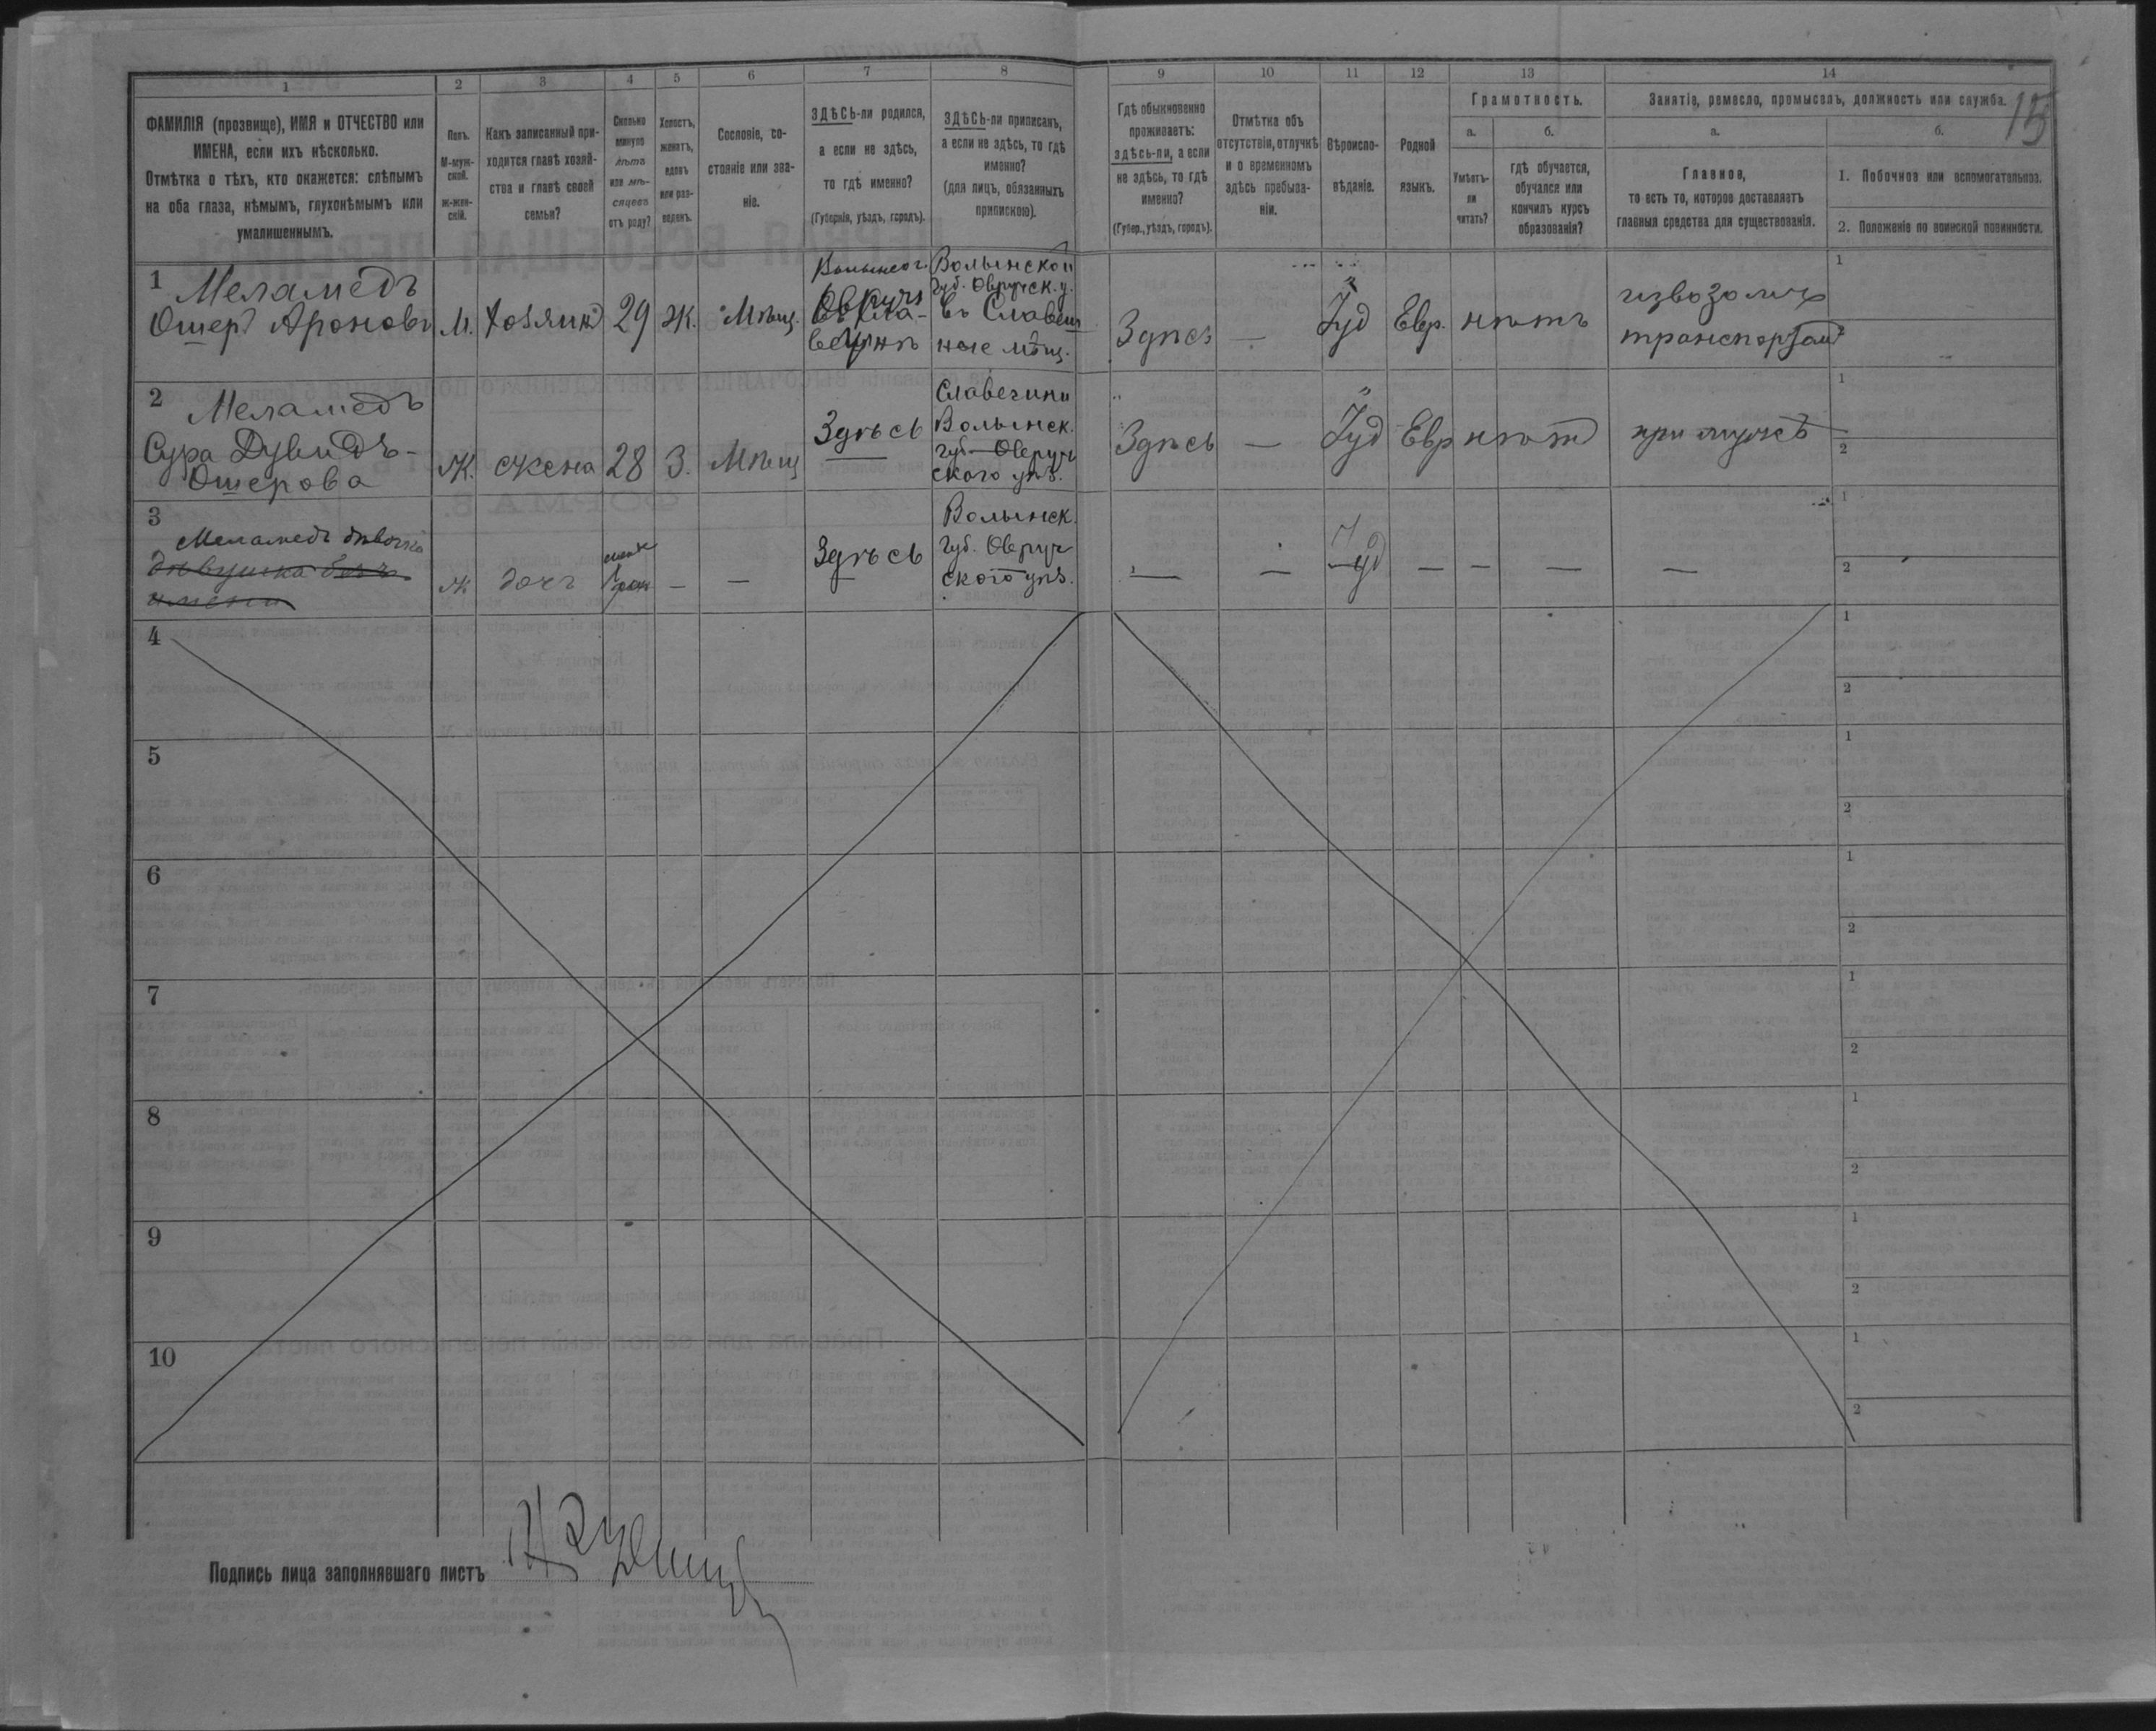 1 2 3 4 5 6 7 8 9 10 11 12 13 14
15
ФАМИЛІЯ (прозвище), ИМЯ и ОТЧЕСТВО или
ИМЕНА, если ихъ нѣсколько.
Отмѣтка о тѣхъ, кто окажется: слѣпымъ
на оба глаза, нѣмымъ, глухонѣмымъ или
умалишеннымъ.
Полъ.
М-муж-
ской.
Ж-жен-
скій.
Какъ записанный при-
ходится главѣ хозяй-
ства и главѣ своей
семьи?
Сколько
минуло
лѣтъ
или мѣ-
сяцевъ
отъ роду?
Холостъ,
женатъ,
вдовъ
или раз-
веденъ.
Сословіе, со-
стояніе или зва-
ніе.
ЗДѢСЬ-ли родился,
а если не здѣсь,
то гдѣ именно?
(Губернія, уѣздъ, городъ).
ЗДѢСЬ-ли приписанъ,
а если не здѣсь, то гдѣ
именно?
(для лицъ, обязанныхъ
припискою).
Гдѣ обыкновенно
проживаетъ:
здѣсь-ли, а если
не здѣсь, то гдѣ
именно?
(Губер., уѣздъ, городъ).
Отмѣтка объ
отсутствіи, отлучкѣ
и о временномъ
здѣсь пребыва-
ніи.
Вѣроиспо-
вѣданіе.
Родной
языкъ.
Грамотность.
а.
Умѣетъ-
ли
читать?
б.
гдѣ обучается,
обучался или
кончилъ курсъ
образованія?
Занятіе, ремесло, промыселъ, должность или служба.
а.
Главное,
то есть то, которое доставляетъ
главныя средства для существованія.
б.
1. Побочное или вспомогательное.
2. Положеніе по воинской повинности.
1
Меламедъ
Ошеръ Ароновъ
М.
Хозяинъ
29
Ж.
Мѣщ.
Волынской
Губ. Овручск. у.
въ Славеч
ное мѣщ.
Здѣсь
—
Іуд
Евр.
нѣтъ
извозомъ
1
2
2
Меламедъ
Сура Дувидъ-
Ошерова
Ж.
жена
28
З.
Мѣщ
Здѣсь
Славечини
Волынск.
Губ Овруч
ского уѣз.
Здѣсь
—
Іуд
Евр
нѣтъ
при мужѣ
1
2
3
Меламедъ дѣвочка
дѣвушка безъ
имени
ж
дочь
—
—
Здѣсь
Волынск.
Губ. Овруч
ского уѣз.
—
—
Іуд
—
—
—
—
1
2
4
1
2
5
1
2
6
1
2
7
1
2
8
1
2
9
1
2
10
1
2
Подпись лица заполнявшаго листъ